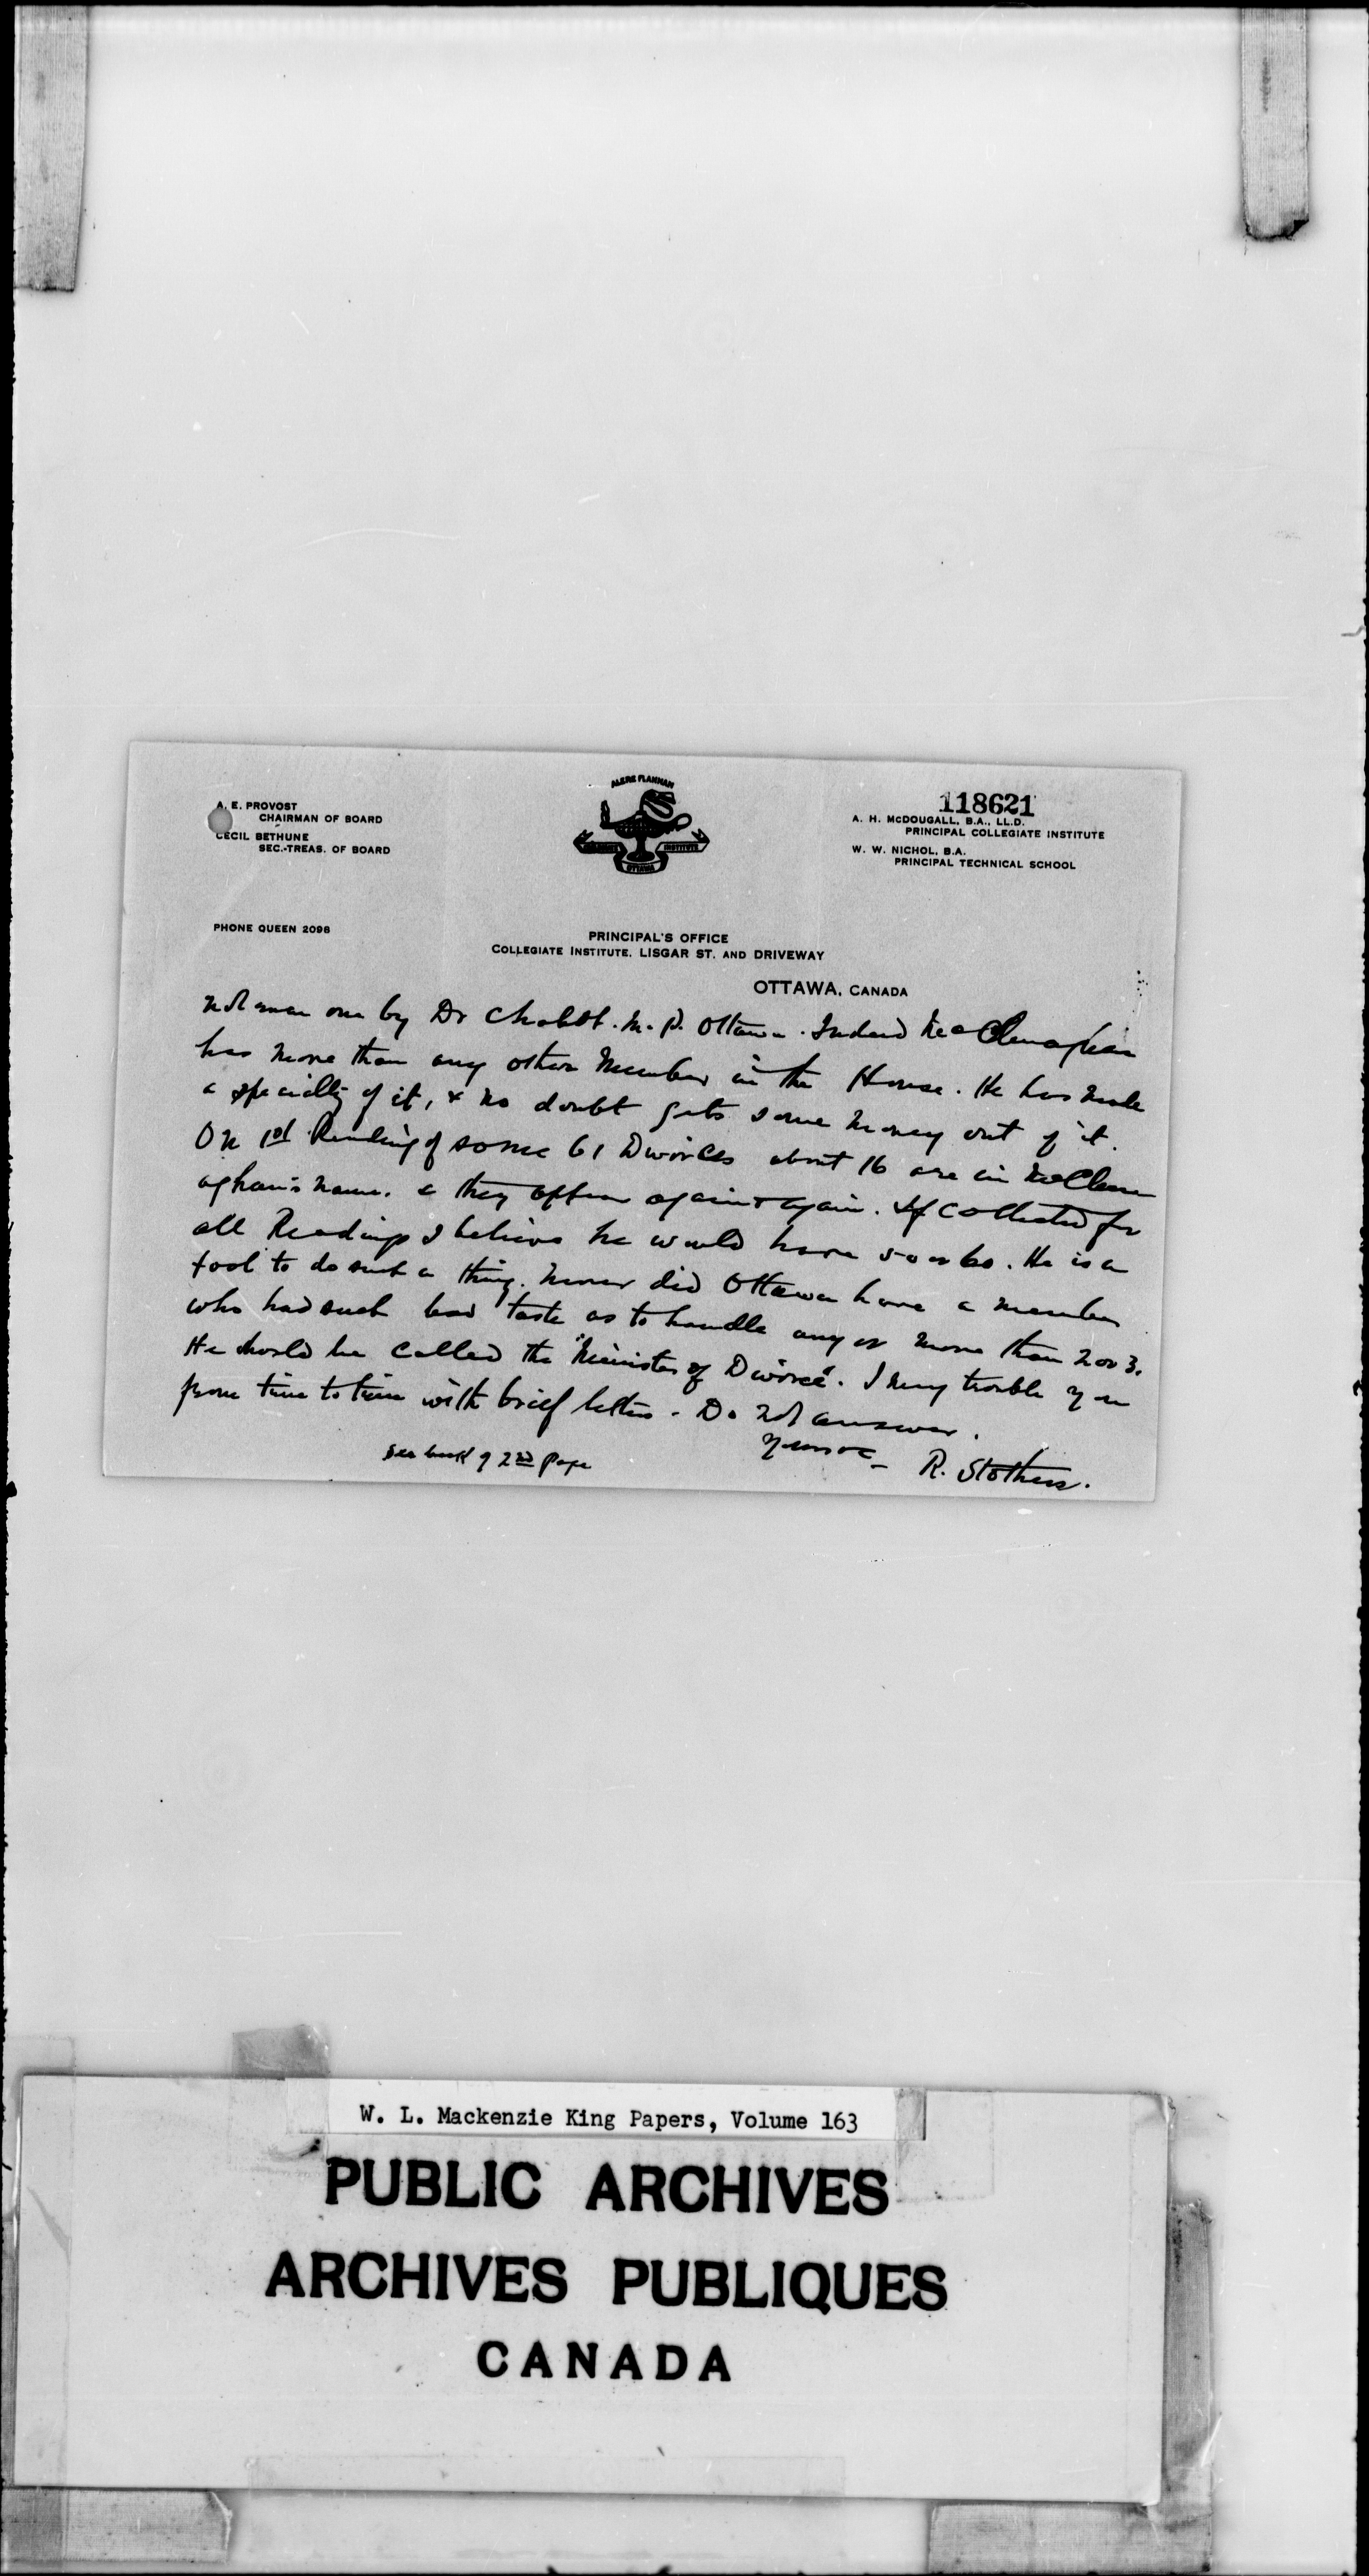 118621
A. E. PROVOST
CHAIRMAN OF BOARD
CECIL BETHUNE
SEC.-TREAS. OF BOARD
ALERE FLAMMAM
INSTITUTE
OTTAWA
A. H. McDOUGALL, B.A., LL.D.
PRINCIPAL COLLEGIATE INSTITUTE
W. W. NICHOL, B.A.
PRINCIPAL TECHNICAL SCHOOL
PHONE QUEEN 2096
PRINCIPAL'S OFFICE
COLLEGIATE INSTITUTE, LISGAR ST. AND DRIVEWAY
OTTAWA, CANADA
not even one by Dr Chabot. M. P. Ottawa. Indeed McClenaghan
has more than any other Member in the House. He has made
a specialty of it, & no doubt gets some money out of it.
On 1st Reading of some 61 Divorces about 16 are in McClen
aghan's name. & they appear again & again. If collected for
all Readings I believe he would have 50 or 60. He is a
fool to do such a thing. Never did Ottawa have a member
who had such bad taste as to handle any or more than 2 or 3.
He should be called the "Minister of Divorce". I may trouble you
from time to time with brief letters. Do not answer.
Yours &c - R. Stothers.
See back of 2nd page
W. L. Mackenzie King Papers, Volume 163
PUBLIC ARCHIVES
ARCHIVES PUBLIQUES
CANADA